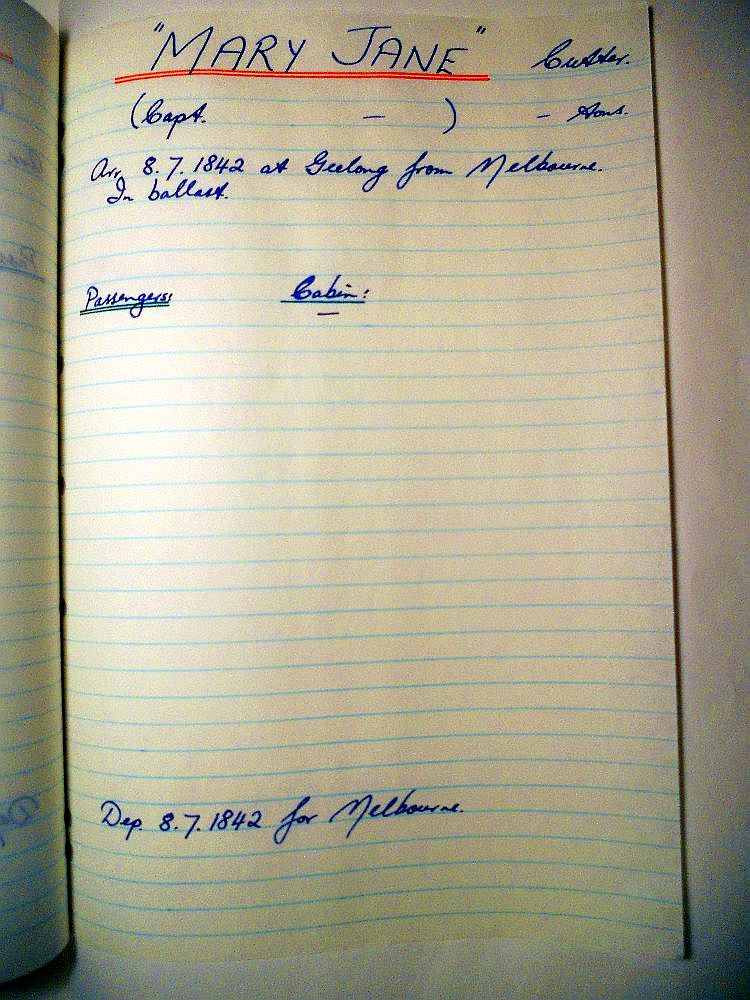 "MARY JANE" Cutter.
(Capt. — ) — tons.
Arr. 8.7.1842 at Geelong from Melbourne.
In ballast.
Passengers: Cabin:
—
Dep. 8.7.1842 for Melbourne.